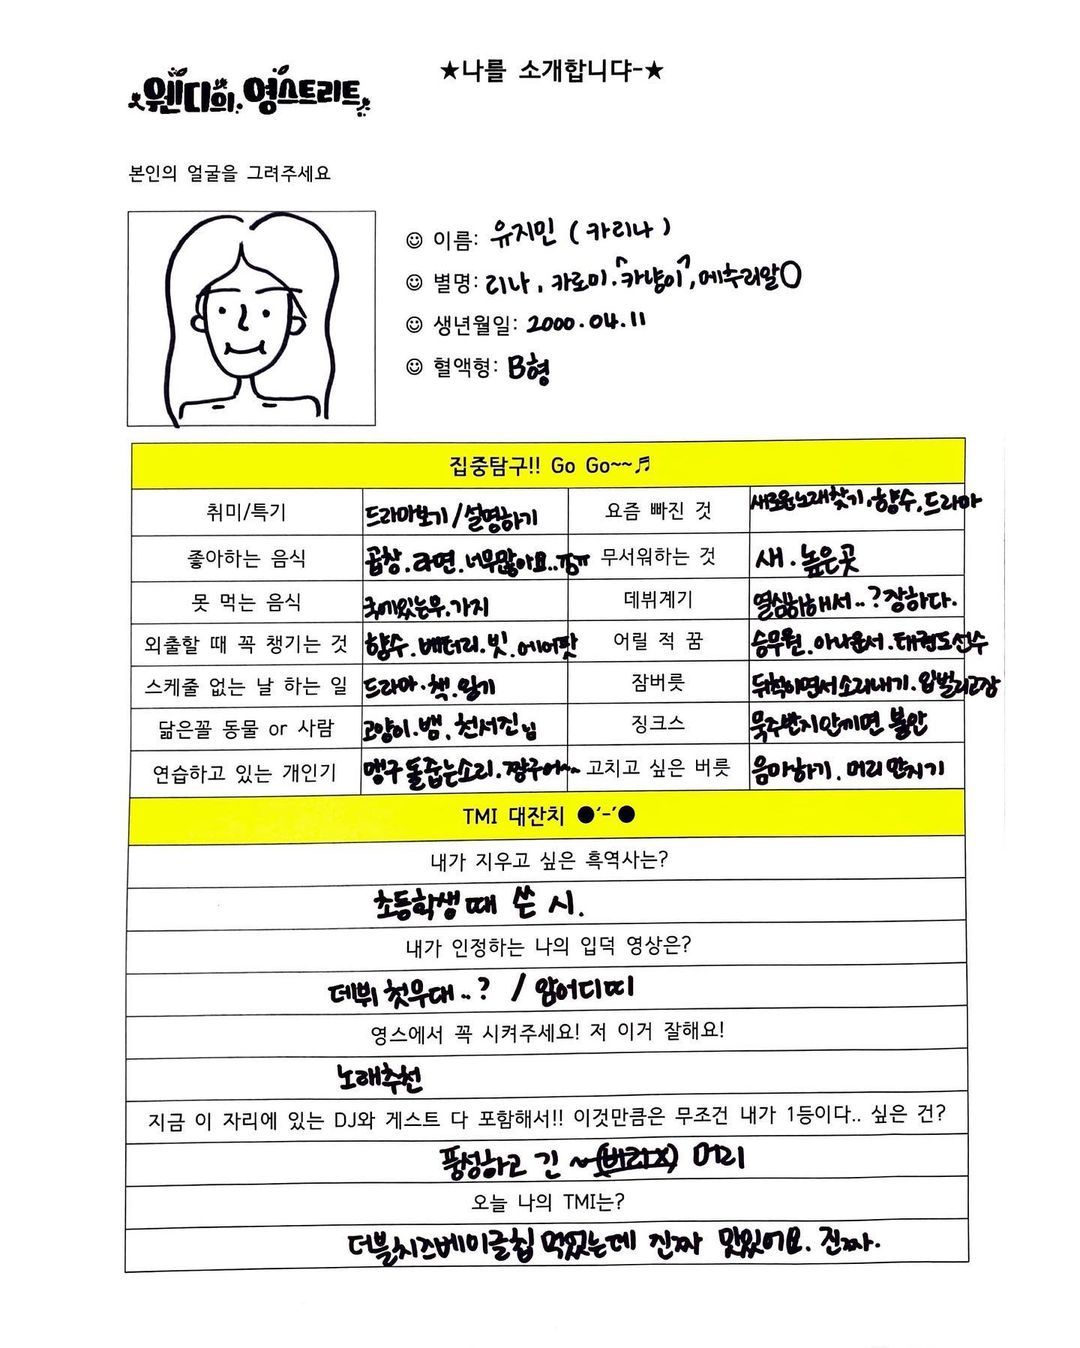 ★나를 소개합니댜-★
웬디의 영스트리트
본인의 얼굴을 그려주세요
☺ 이름: 유지민 (카리나)
☺ 별명: 리나, 카로미. "카냥이", 메추리알O
☺ 생년월일: 2000.04.11
☺ 혈액형: B형
집중탐구!! Go Go~~♬
취미/특기 드라마보기/설명하기 요즘 빠진 것 새로운노래찾기, 향수, 드라마
좋아하는 음식 곱창. 라면. 너무많아요.. 무서워하는 것 새. 높은곳
못 먹는 음식 국에있는무. 가지 데뷔계기 열심히해서..? 장하다.
외출할 때 꼭 챙기는 것 향수. 배터리. 빗. 에어팟 어릴 적 꿈 승무원. 아나운서. 태권도선수
스케줄 없는 날 하는 일 드라마. 책. 일기 잠버릇 뒤척이면서소리내기. 입벌리고잠
닮은꼴 동물 or 사람 고양이. 뱀. 천서진님 징크스 묵주반지안끼면 불안
연습하고 있는 개인기 맹구 돌줍는소리. 짱구야~~ 고치고 싶은 버릇 음마하기. 머리 만지기
TMI 대잔치 ●'-'●
내가 지우고 싶은 흑역사는?
초등학생 때 쓴 시.
내가 인정하는 나의 입덕 영상은?
데뷔 첫무대..? / 암어디띠
영스에서 꼭 시켜주세요! 저 이거 잘해요!
노래추천
지금 이 자리에 있는 DJ와 게스트 다 포함해서!! 이것만큼은 무조건 내가 1등이다.. 싶은 건?
풍성하고 긴 ~ 머리
오늘 나의 TMI는?
더블치즈베이글칩 먹었는데 진짜 맛있어요. 진짜.